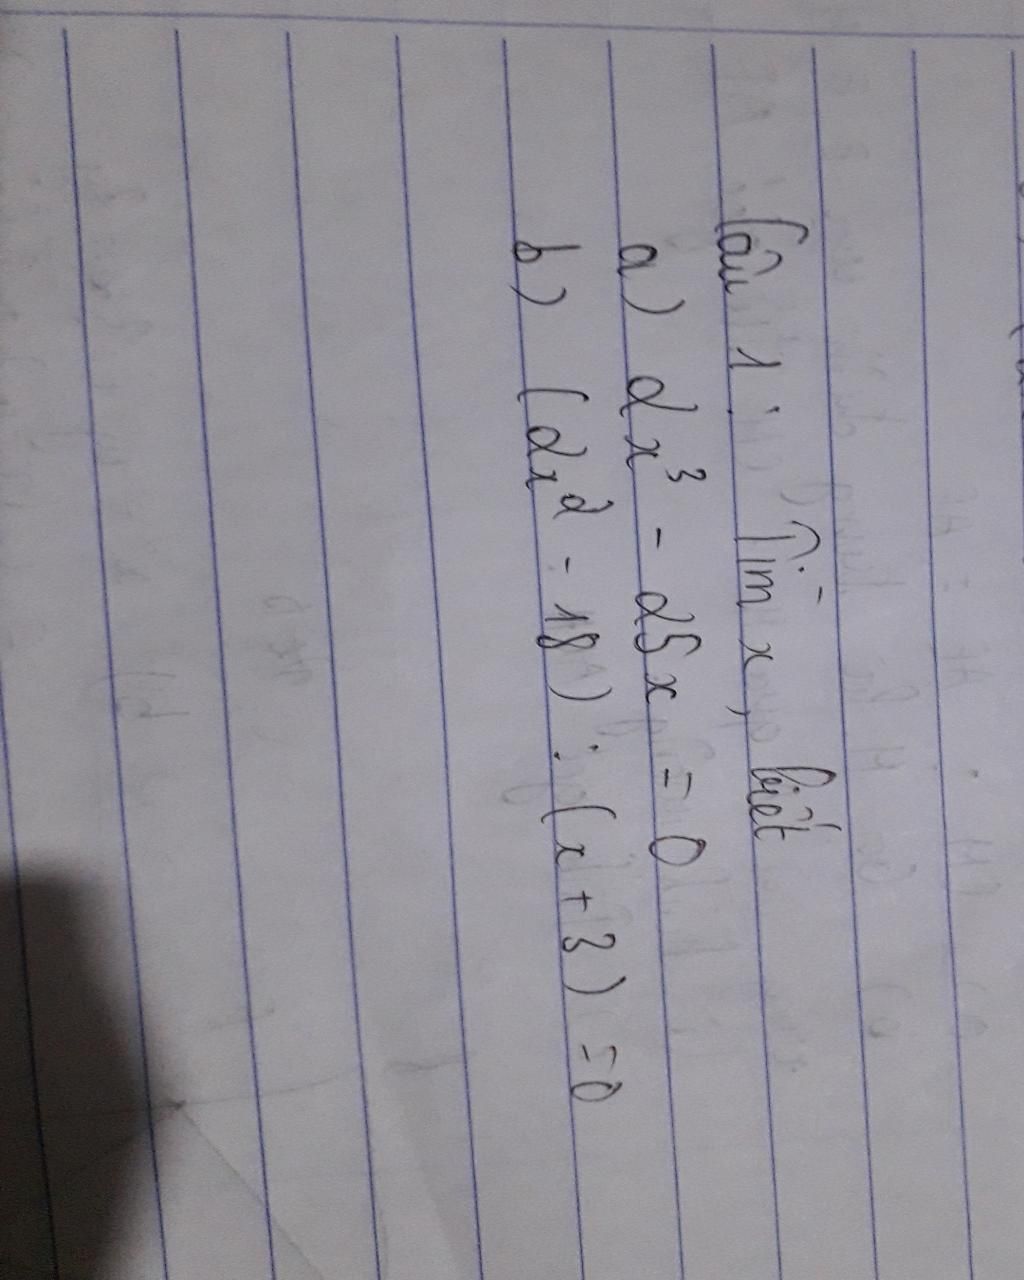 Câu 1 : Tìm x, biết
a) 2x³ - 25x = 0
b) (2x² - 18) : (x + 3) = 0